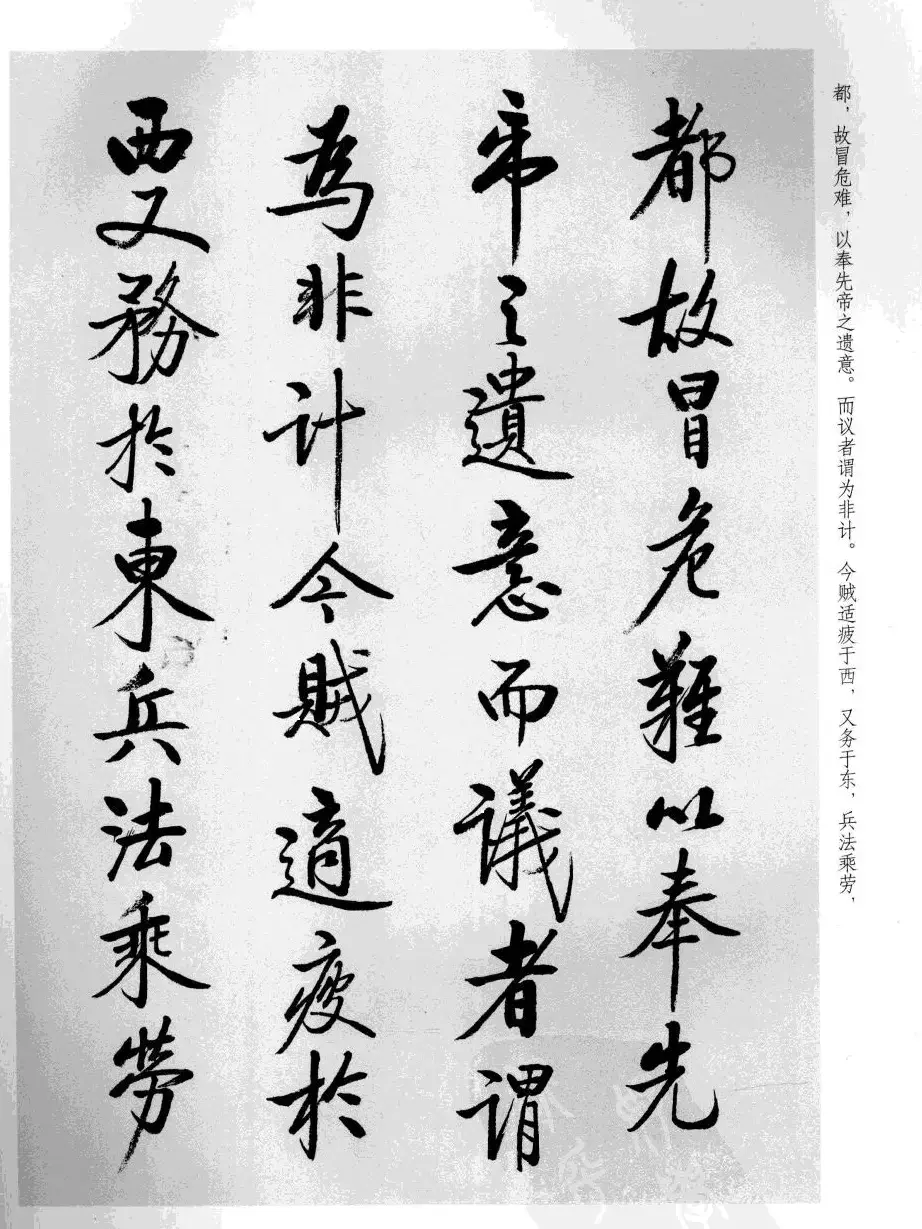 都，故冒危难，以奉先帝之遗意。而议者谓为非计。今贼适疲于西，又务于东，兵法乘劳，
都故冒危難以奉先
帝之遺意而議者謂
為非計今賊適疲於
西又務於東兵法乘勞